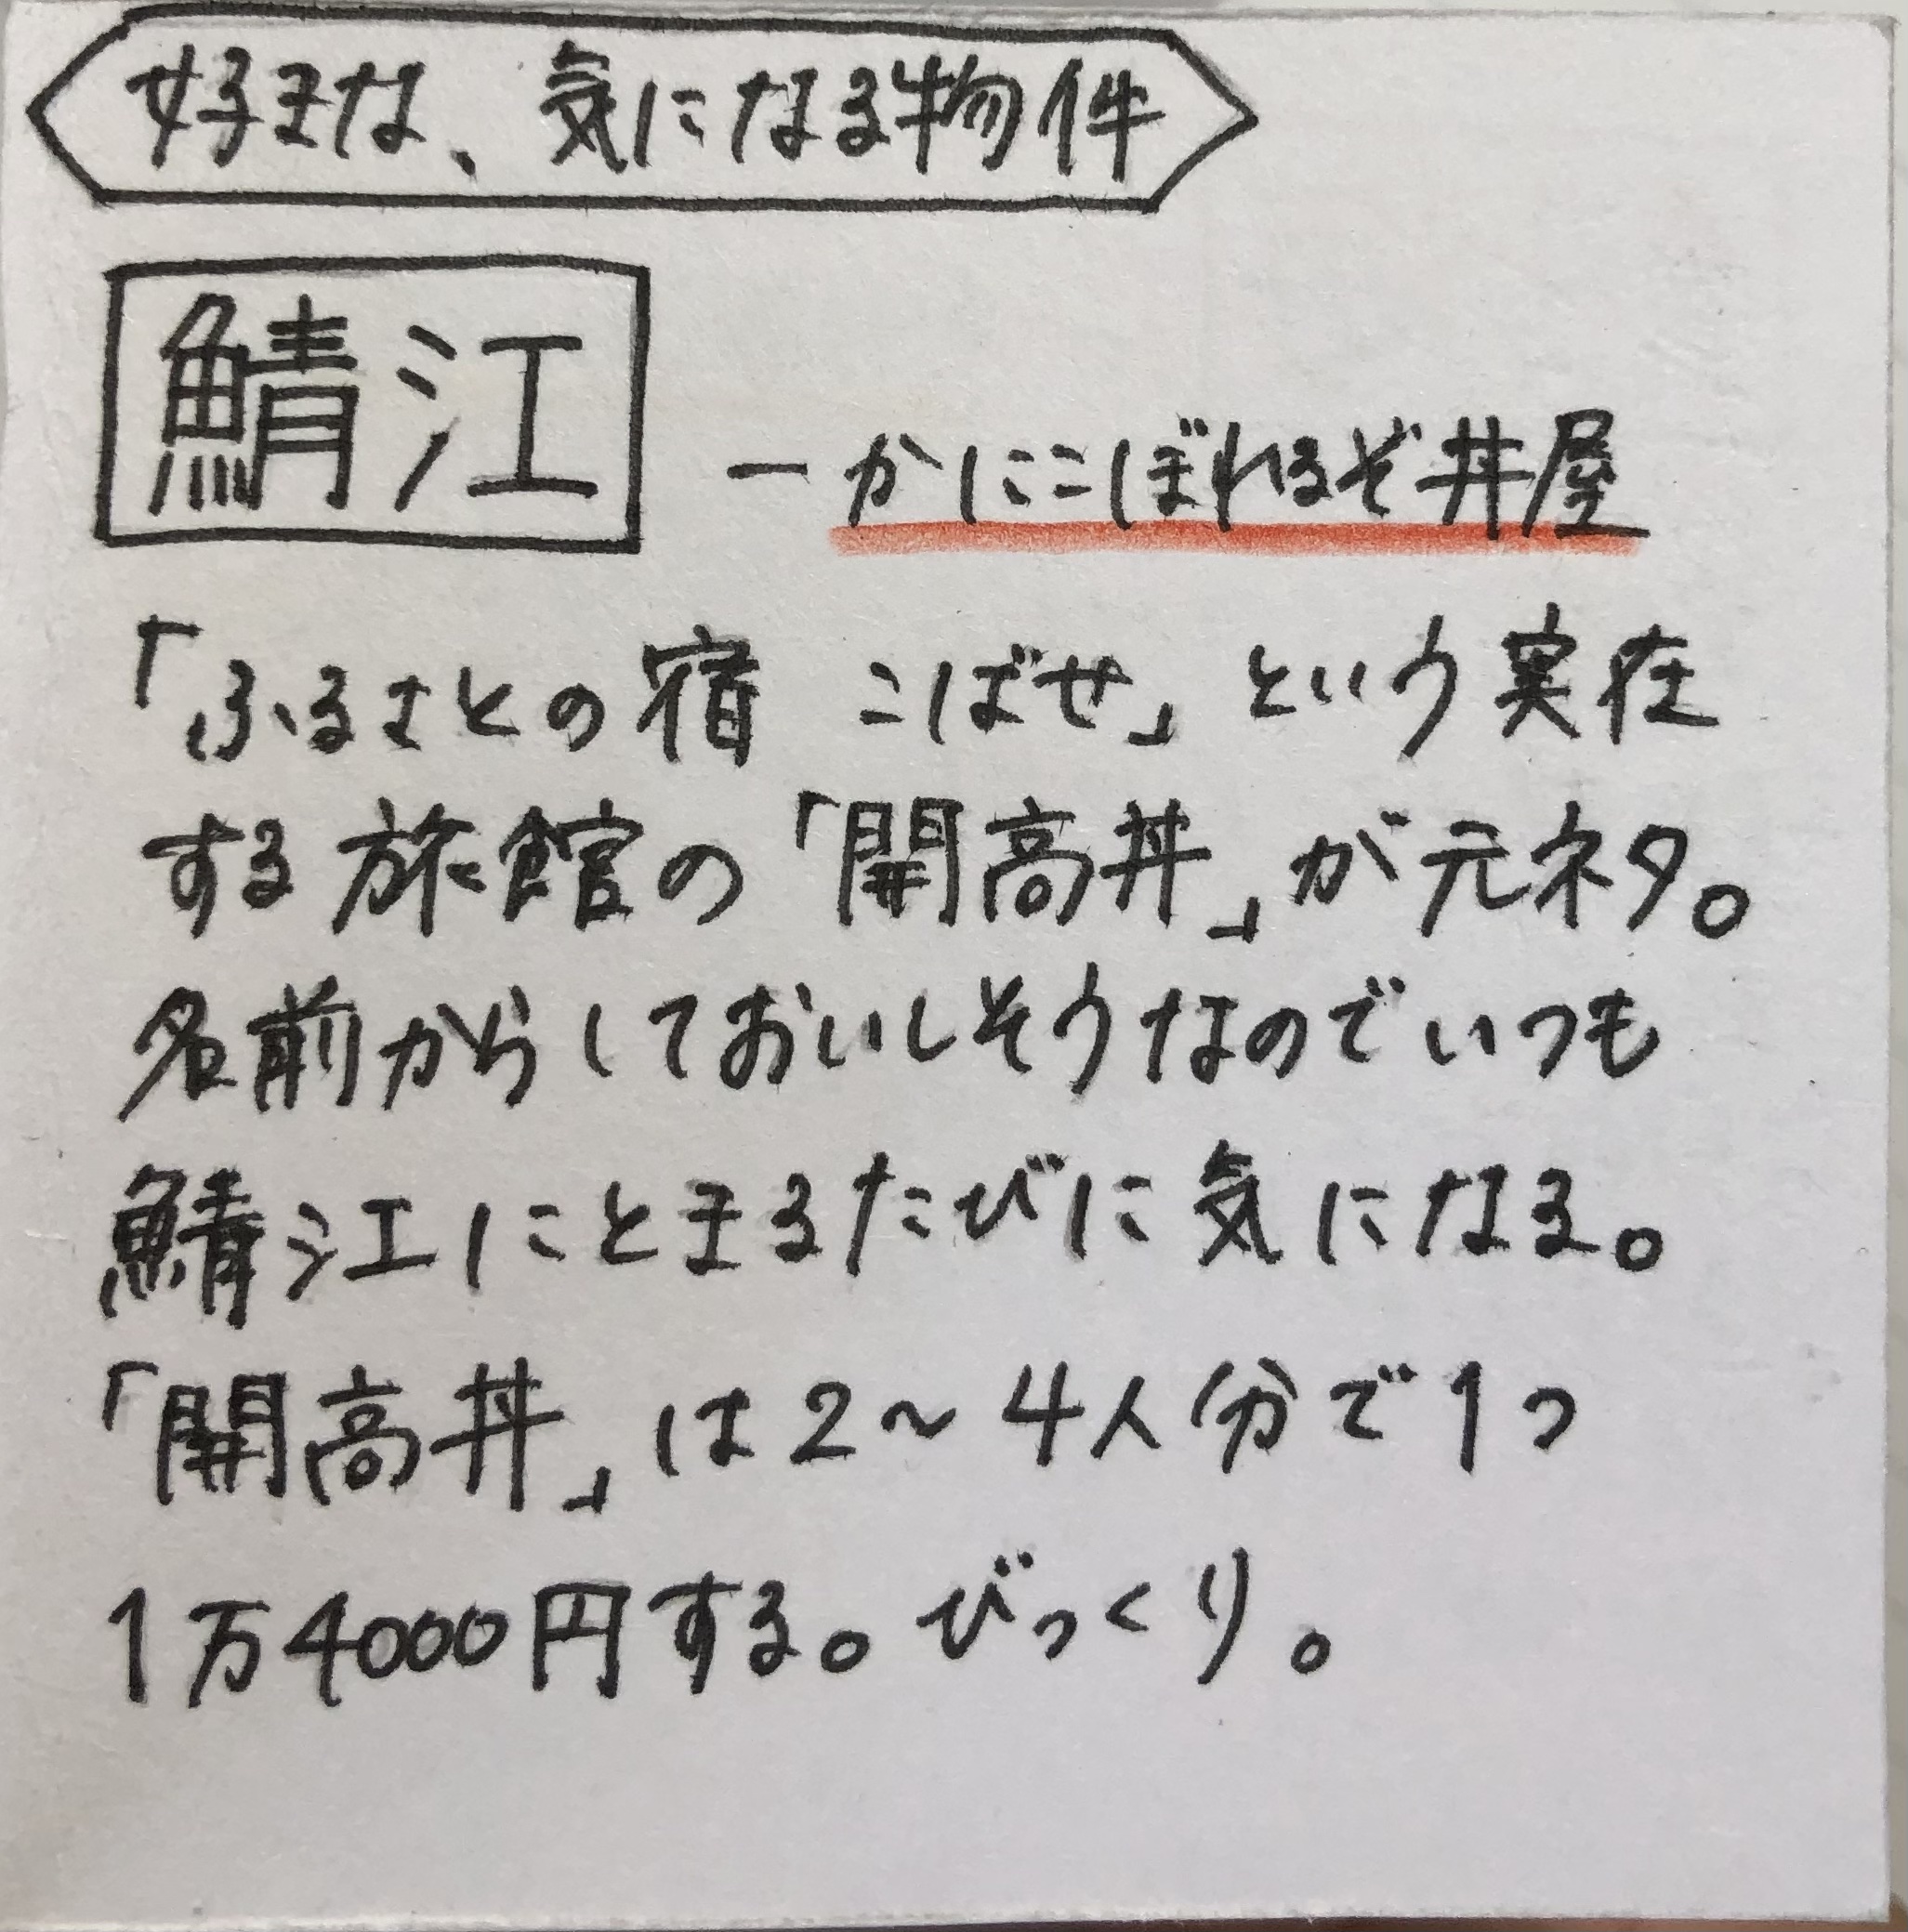 好きな、気になる物件
鯖江
ーかにこぼれるぞ丼屋
「ふるさとの宿 こばせ」という実在
する旅館の「開高丼」が元ネタ。
名前からしておいしそうなのでいつも
鯖江にとまるたびに気になる。
「開高丼」は2〜4人分で1つ
1万4000円する。びっくり。